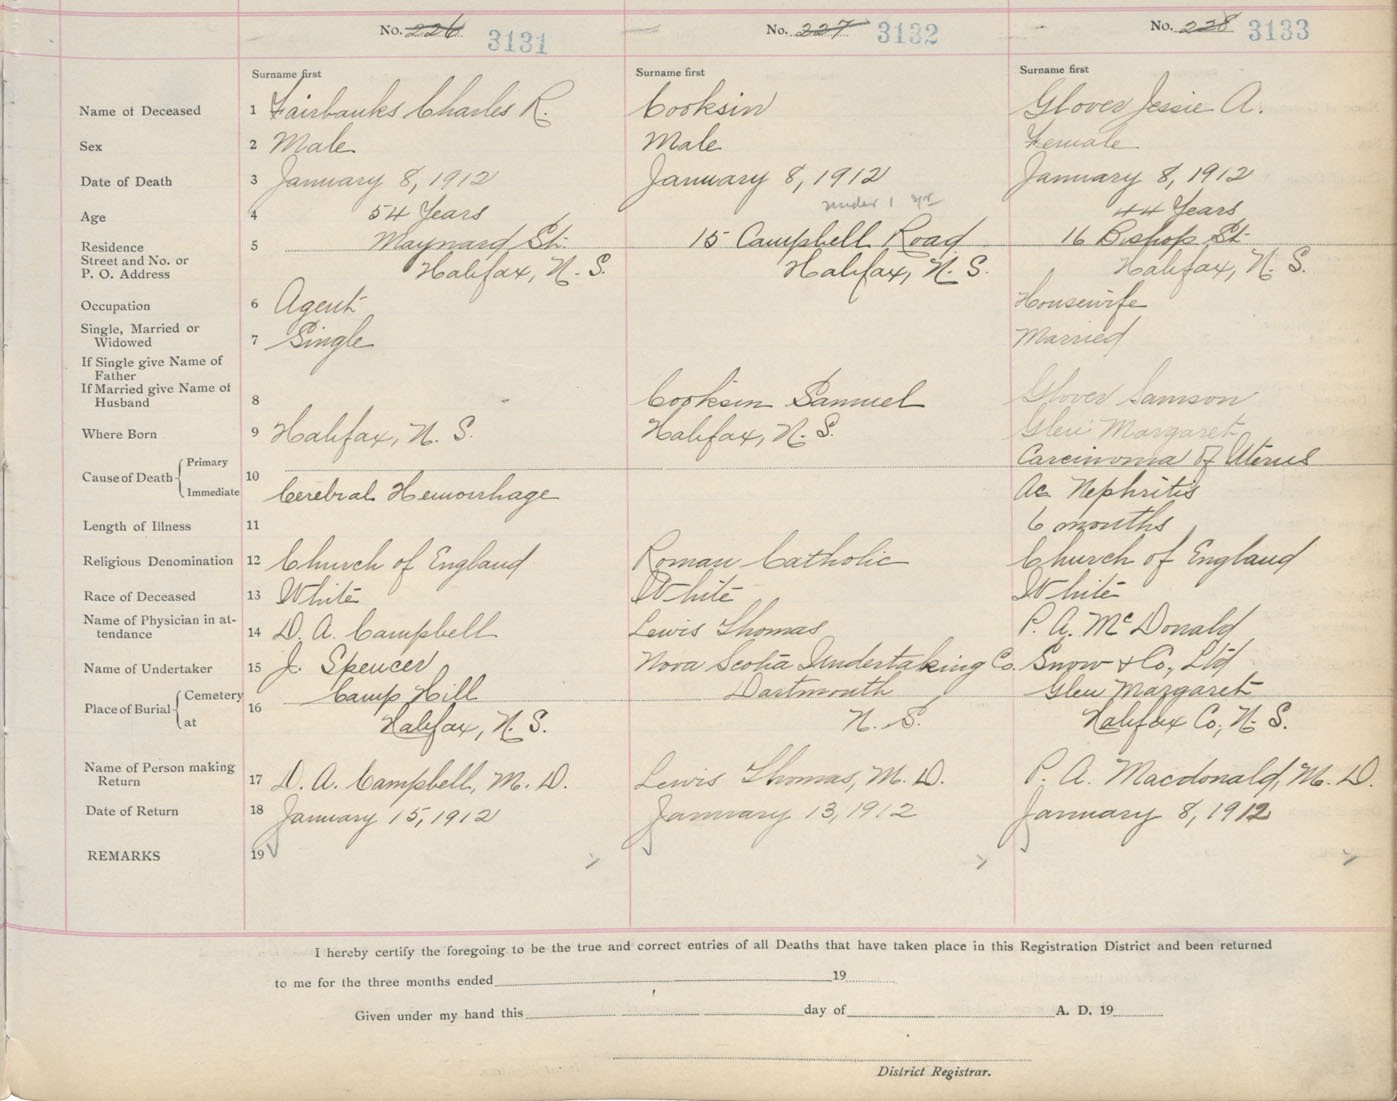 No. 226 3131 No. 227 3132 No. 228 3133
Surname first Surname first Surname first
Name of Deceased 1 Fairbanks Charles R. Cooksin Glover Jessie A.
Sex 2 Male Male Female
Date of Death 3 January 8, 1912 January 8, 1912 January 8, 1912
Age 4 54 Years under 1 yr 44 Years
Residence 5 Maynard St. 15 Campbell Road 16 Bishop St.
Street and No. or
P. O. Address Halifax, N. S. Halifax, N. S. Halifax, N. S.
Occupation 6 Agent Housewife
Single, Married or
Widowed 7 Single Married
If Single give Name of
Father
If Married give Name of
Husband 8 Cooksin Samuel Glover Samson
Where Born 9 Halifax, N. S. Halifax, N. S. Glen Margaret
Cause of Death Primary 10 Carcinoma of Uterus
Immediate Cerebral Hemorrhage Ac Nephritis
Length of Illness 11 6 months
Religious Denomination 12 Church of England Roman Catholic Church of England
Race of Deceased 13 White White White
Name of Physician in at-
tendance 14 D. A. Campbell Lewis Thomas P. A. McDonald
Name of Undertaker 15 J. Spencer Nova Scotia Undertaking Co. Snow & Co., Ltd
Place of Burial Cemetery 16 Camp Hill Dartmouth Glen Margaret
at Halifax, N. S. N. S. Halifax Co., N. S.
Name of Person making
Return 17 D. A. Campbell, M. D. Lewis Thomas, M. D. P. A. Macdonald, M. D.
Date of Return 18 January 15, 1912 January 13, 1912 January 8, 1912
REMARKS 19
I hereby certify the foregoing to be the true and correct entries of all Deaths that have taken place in this Registration District and been returned
to me for the three months ended 19
Given under my hand this day of A. D. 19
District Registrar.